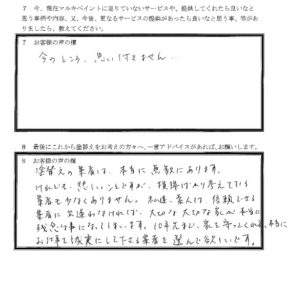 7 今、現在マルキペイントに足りていないサービスや、提供してくれたら良いなと
思う事柄や内容。又、今後、更なるサービスの提供があったら良いなと思う事、等があ
りましたら、教えてください。
7 お客様の声の欄
今のところ、思い付きません…
8 最後にこれから塗替えをお考えの方々へ、一言アドバイスがあれば、お願いします。
8 お客様の声の欄
塗替えの業者は、本当に無数にあります。
けれども、悲しいことですが、損得ばかり考えている
業者も少なくありません。私達、素人は、信頼できる
業者に出逢わなければ、大切な大切な家が本当に
残念な事になってしまいます。10年先まで、家を守ってくれる、本当に
お仕事を誠実にして下さる業者を選んで欲しいです。